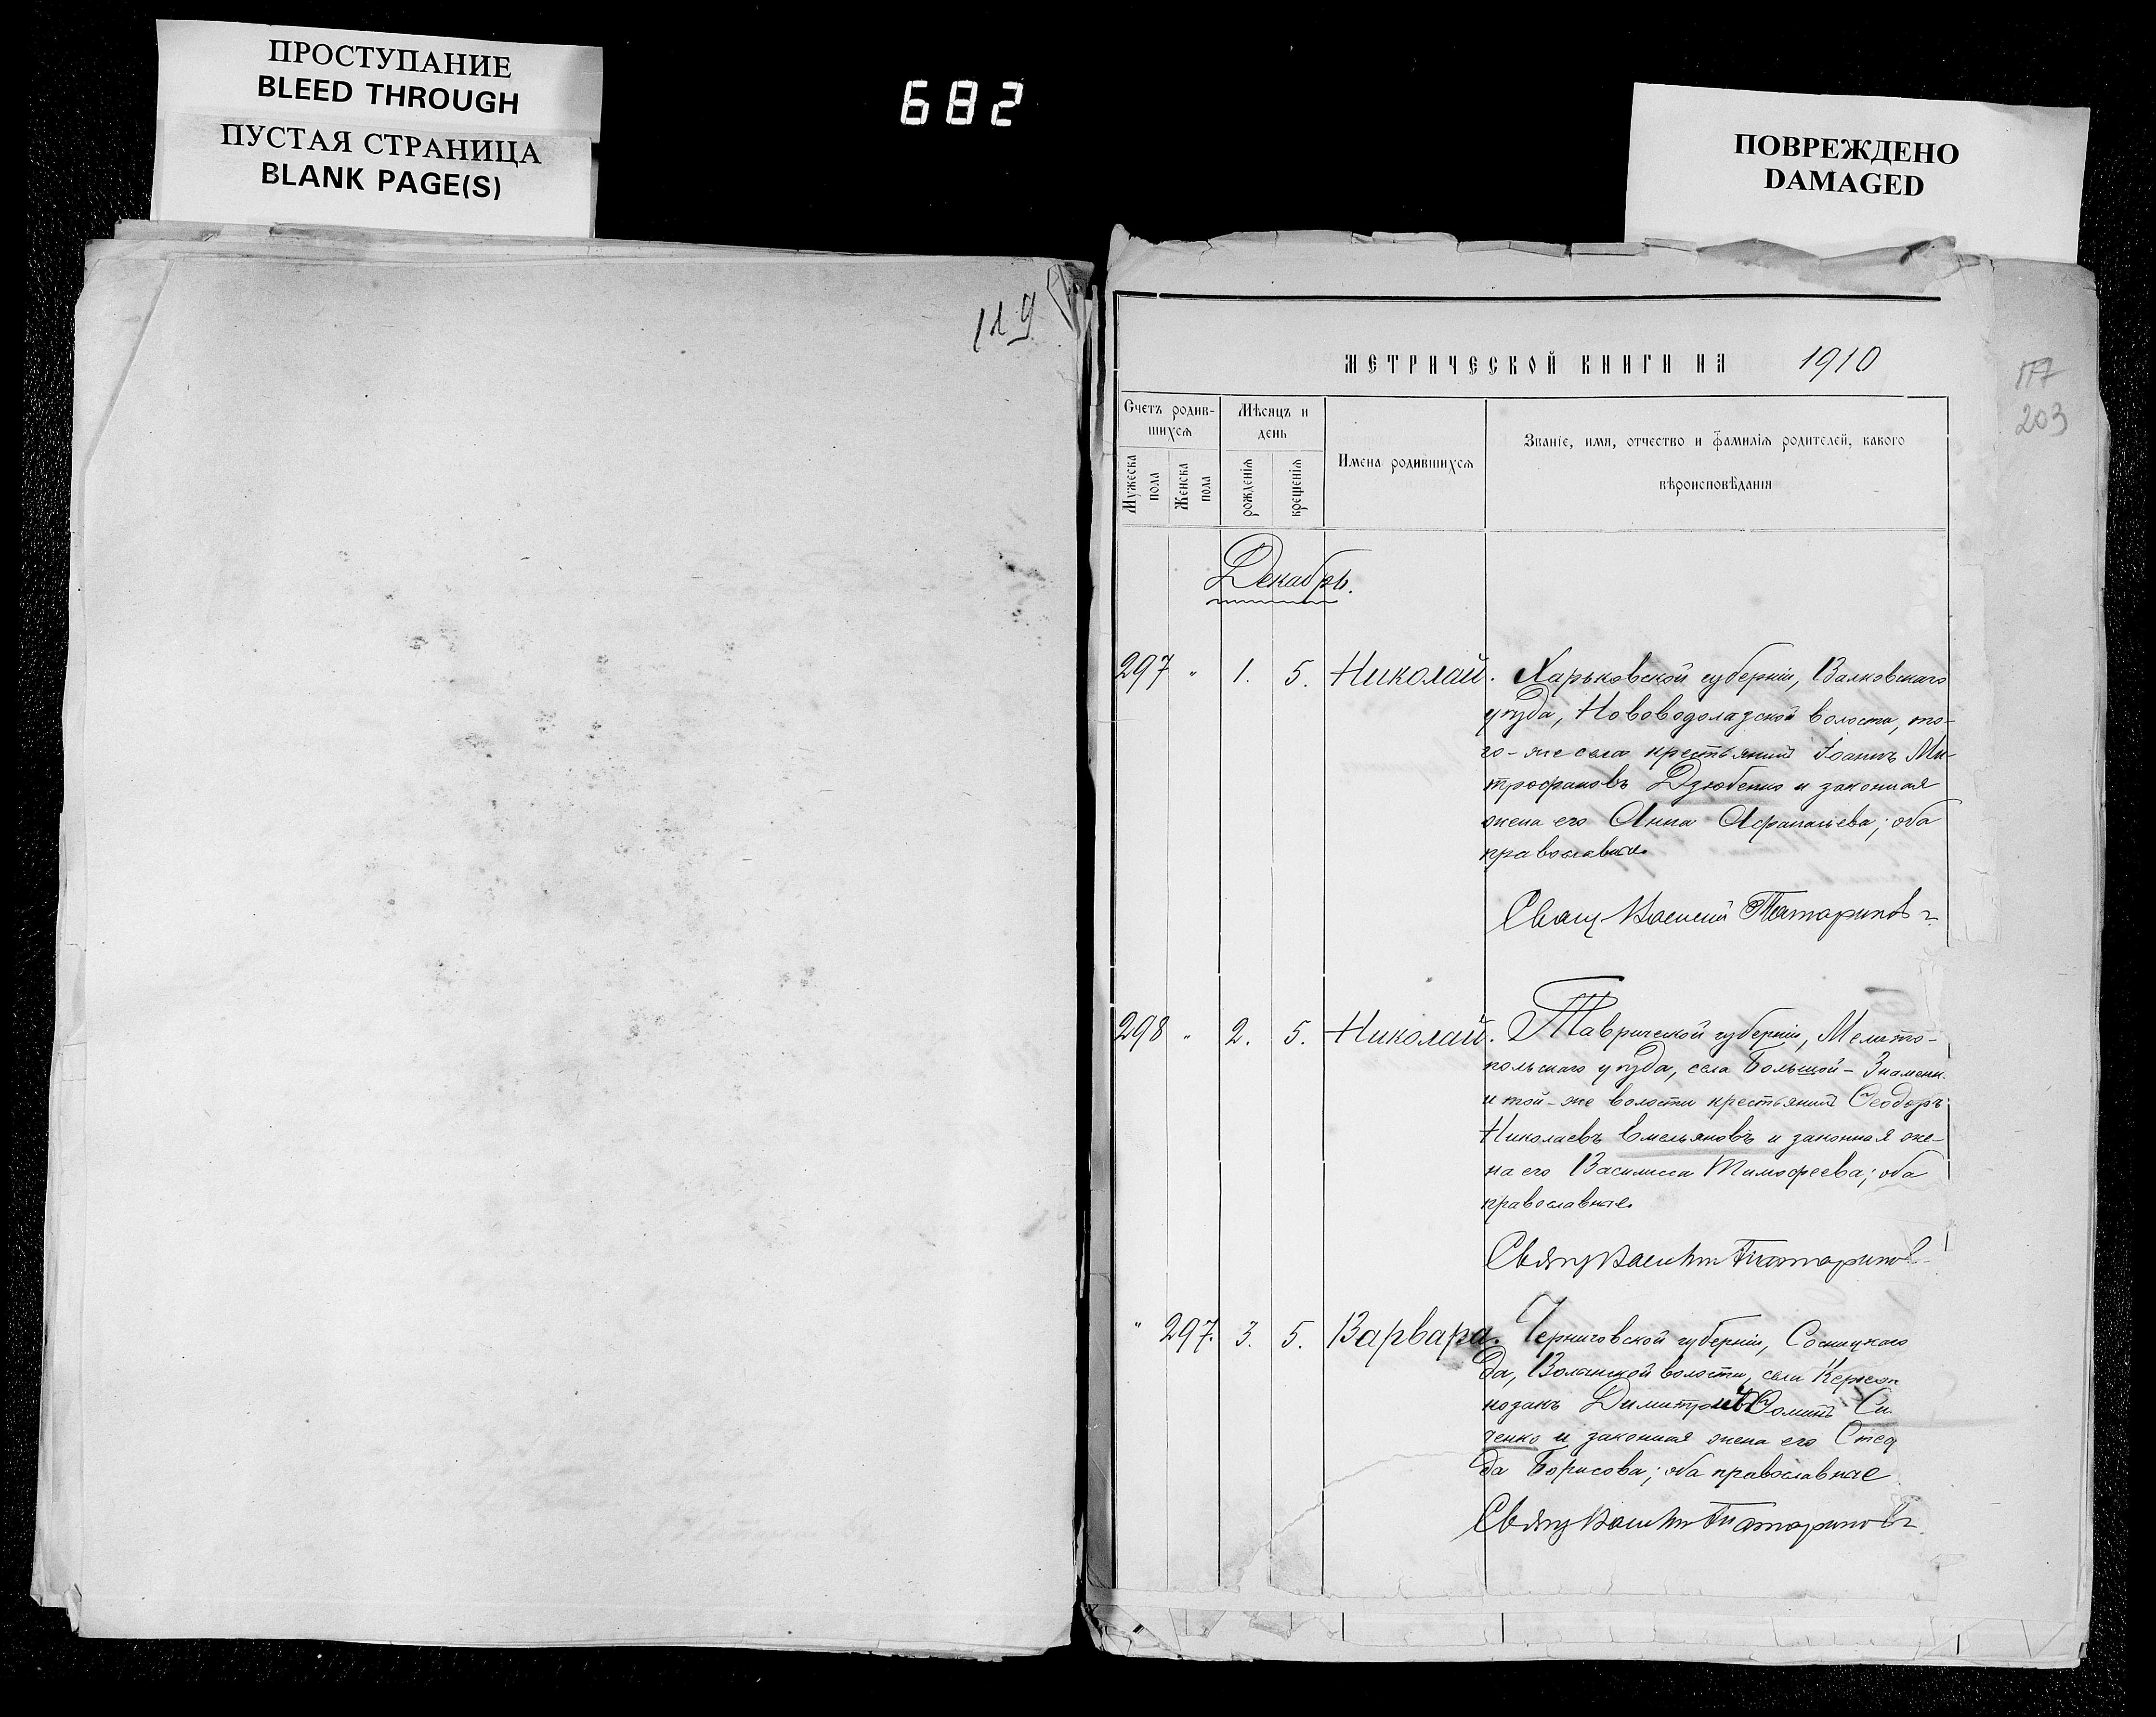 ПРОСТУПАНИЕ
BLEED THROUGH
ПУСТАЯ СТРАНИЦА
BLANK PAGE(S)
682
ПОВРЕЖДЕНО
DAMAGED
119
МЕТРИЧЕСКОЙ КНИГИ НА 1910
177
203
Счетъ родив-
шихся
Мужеска пола
Женска пола
Мѣсяцъ и
день
рожденія
крещенія
Имена родившихся
Званіе, имя, отчество и фамилія родителей, какого
вѣроисповѣданія
Декабрь.
297 " 1. 5. Николай. Харьковской губерніи, Валковскаго
уѣзда, Нововодолазской волости, то-
го-же села крестьянинъ Іоаннъ Ми-
трофановъ Дзюбенко и законная
жена его Анна Афанасіева; оба
православные.
Свящ Василій Татариновъ
298 " 2. 5. Николай. Таврической губерніи, Мелито-
польскаго уѣзда, села Большой-Знаменк.
и той-же волости крестьянинъ Ѳеодоръ
Николаевъ Емельяновъ и законная же-
на его Василисса Тимофеева; оба
православные.
Свящ Василій Татариновъ
" 297. 3. 5. Варвара. Черниговской губерніи, Сосницкаго
да, Волынской волости, села
козакъ Димитрій Ѳоминъ Си
ченко и законная жена его
да Борисова; оба православные
Свящ Василій Татариновъ